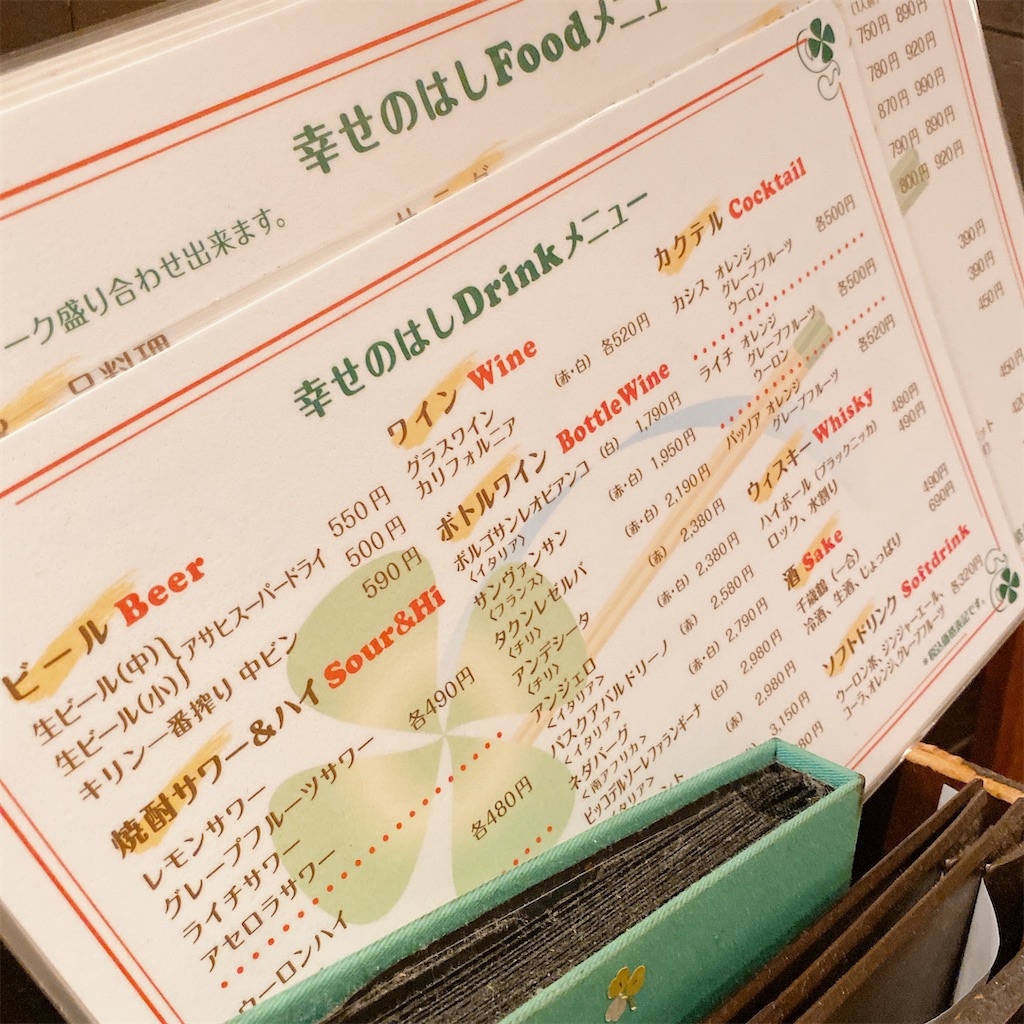 幸せのはしFoodメニュ
ーク盛り合わせ出来ます。
750円 890円
780円 920円
870円 990円
790円 890円
800円 920円
390円
390円
450円
450円
幸せのはしDrinkメニュー
ビール Beer
生ビール(中)
生ビール(小)
アサヒスーパードライ
550円
500円
キリン一番搾り 中ビン 590円
焼酎サワー&ハイ Sour&Hi
レモンサワー
グレープフルーツサワー
ライチサワー
アセロラサワー
各490円
ウーロンハイ
各480円
ワイン Wine
グラスワイン
カリフォルニア
(赤・白) 各520円
ボトルワイン BottleWine
ボルゴサンレオビアンコ (白) 1,790円
〈イタリア〉
サンヴァンサン (赤・白) 1,950円
〈フランス〉
タクンレゼルバ (赤・白) 2,190円
〈チリ〉
アンデシータ (赤) 2,380円
〈チリ〉
アンジェロ (赤・白) 2,380円
〈イタリア〉
パスクアパルドリーノ (赤) 2,580円
〈イタリア〉
ネダバーグ (赤・白) 2,790円
〈南アフリカ〉
ピッコデルソーレファランギーナ (白) 2,980円
〈イタリア〉
(赤) 2,980円
3,150円
カクテル Cocktail
カシス オレンジ
グレープフルーツ
ウーロン
各500円
ライチ オレンジ
グレープフルーツ
ウーロン
各500円
パッソア オレンジ
グレープフルーツ
各520円
ウィスキー Whisky
ハイボール(ブラックニッカ) 480円
ロック、水割り 490円
酒 Sake
千歳鶴(一合) 490円
冷酒、生酒、じょっぱり 690円
ソフトドリンク Softdrink
ウーロン茶、ジンジャーエール、
コーラ、オレンジ、グレープフルーツ
各320円